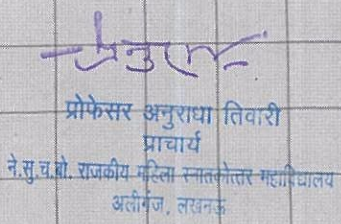 अनुराधा
प्रोफेसर अनुराधा तिवारी
प्राचार्य
ने.सु.च.बो. राजकीय महिला स्नातकोत्तर महाविद्यालय
अलीगंज, लखनऊ